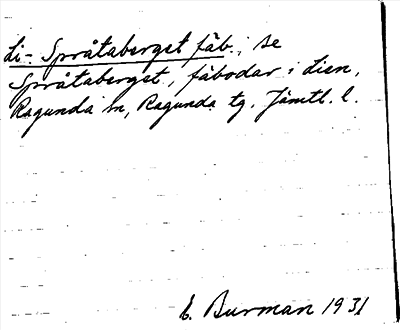 Li-Språtaberget fäb.; se
Språtaberget, fäbodar i Lien,
Ragunda sn, Ragunda tg. Jämtl. l.
E. Burman 1931